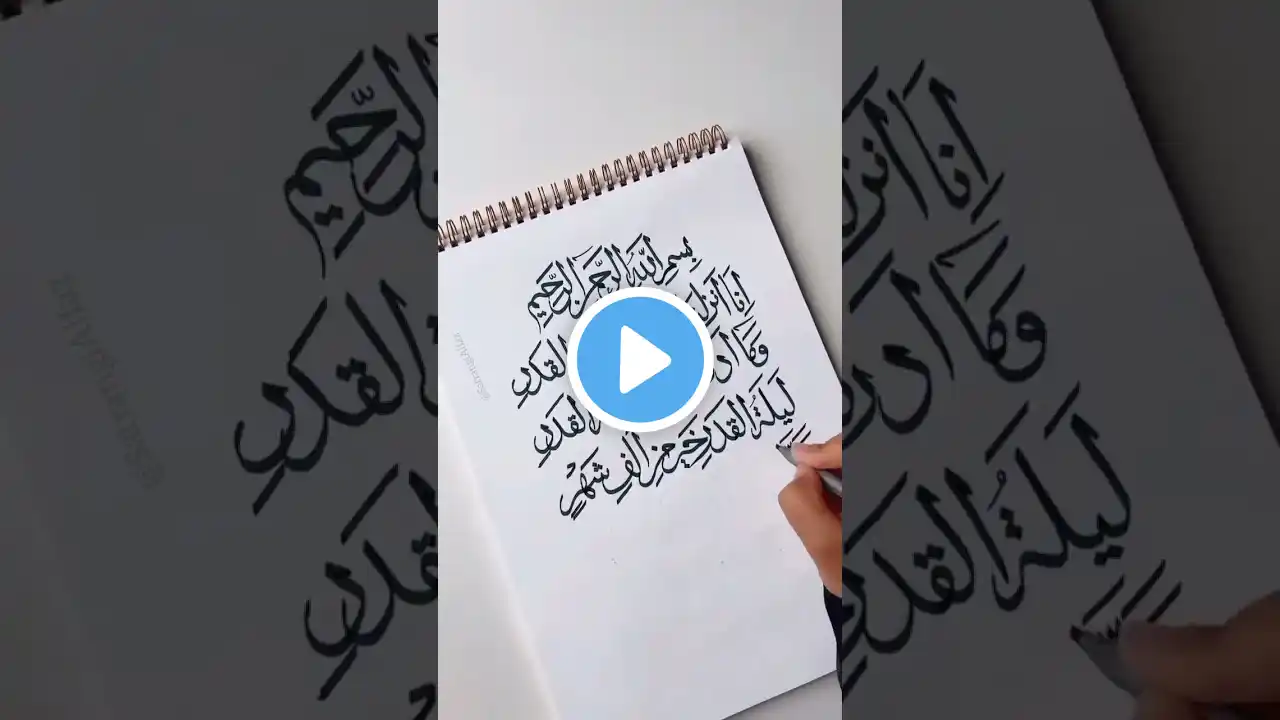 بِسْمِ اللّٰهِ الرَّحْمٰنِ الرَّحِيمِ
اِنَّا اَنْزَل القَدْرِ
وَمَا اَدْر القَدْرِ
لَيْلَةُ القَدْرِ خَيْرٌ مِنْ اَلْفِ شَهْرٍ